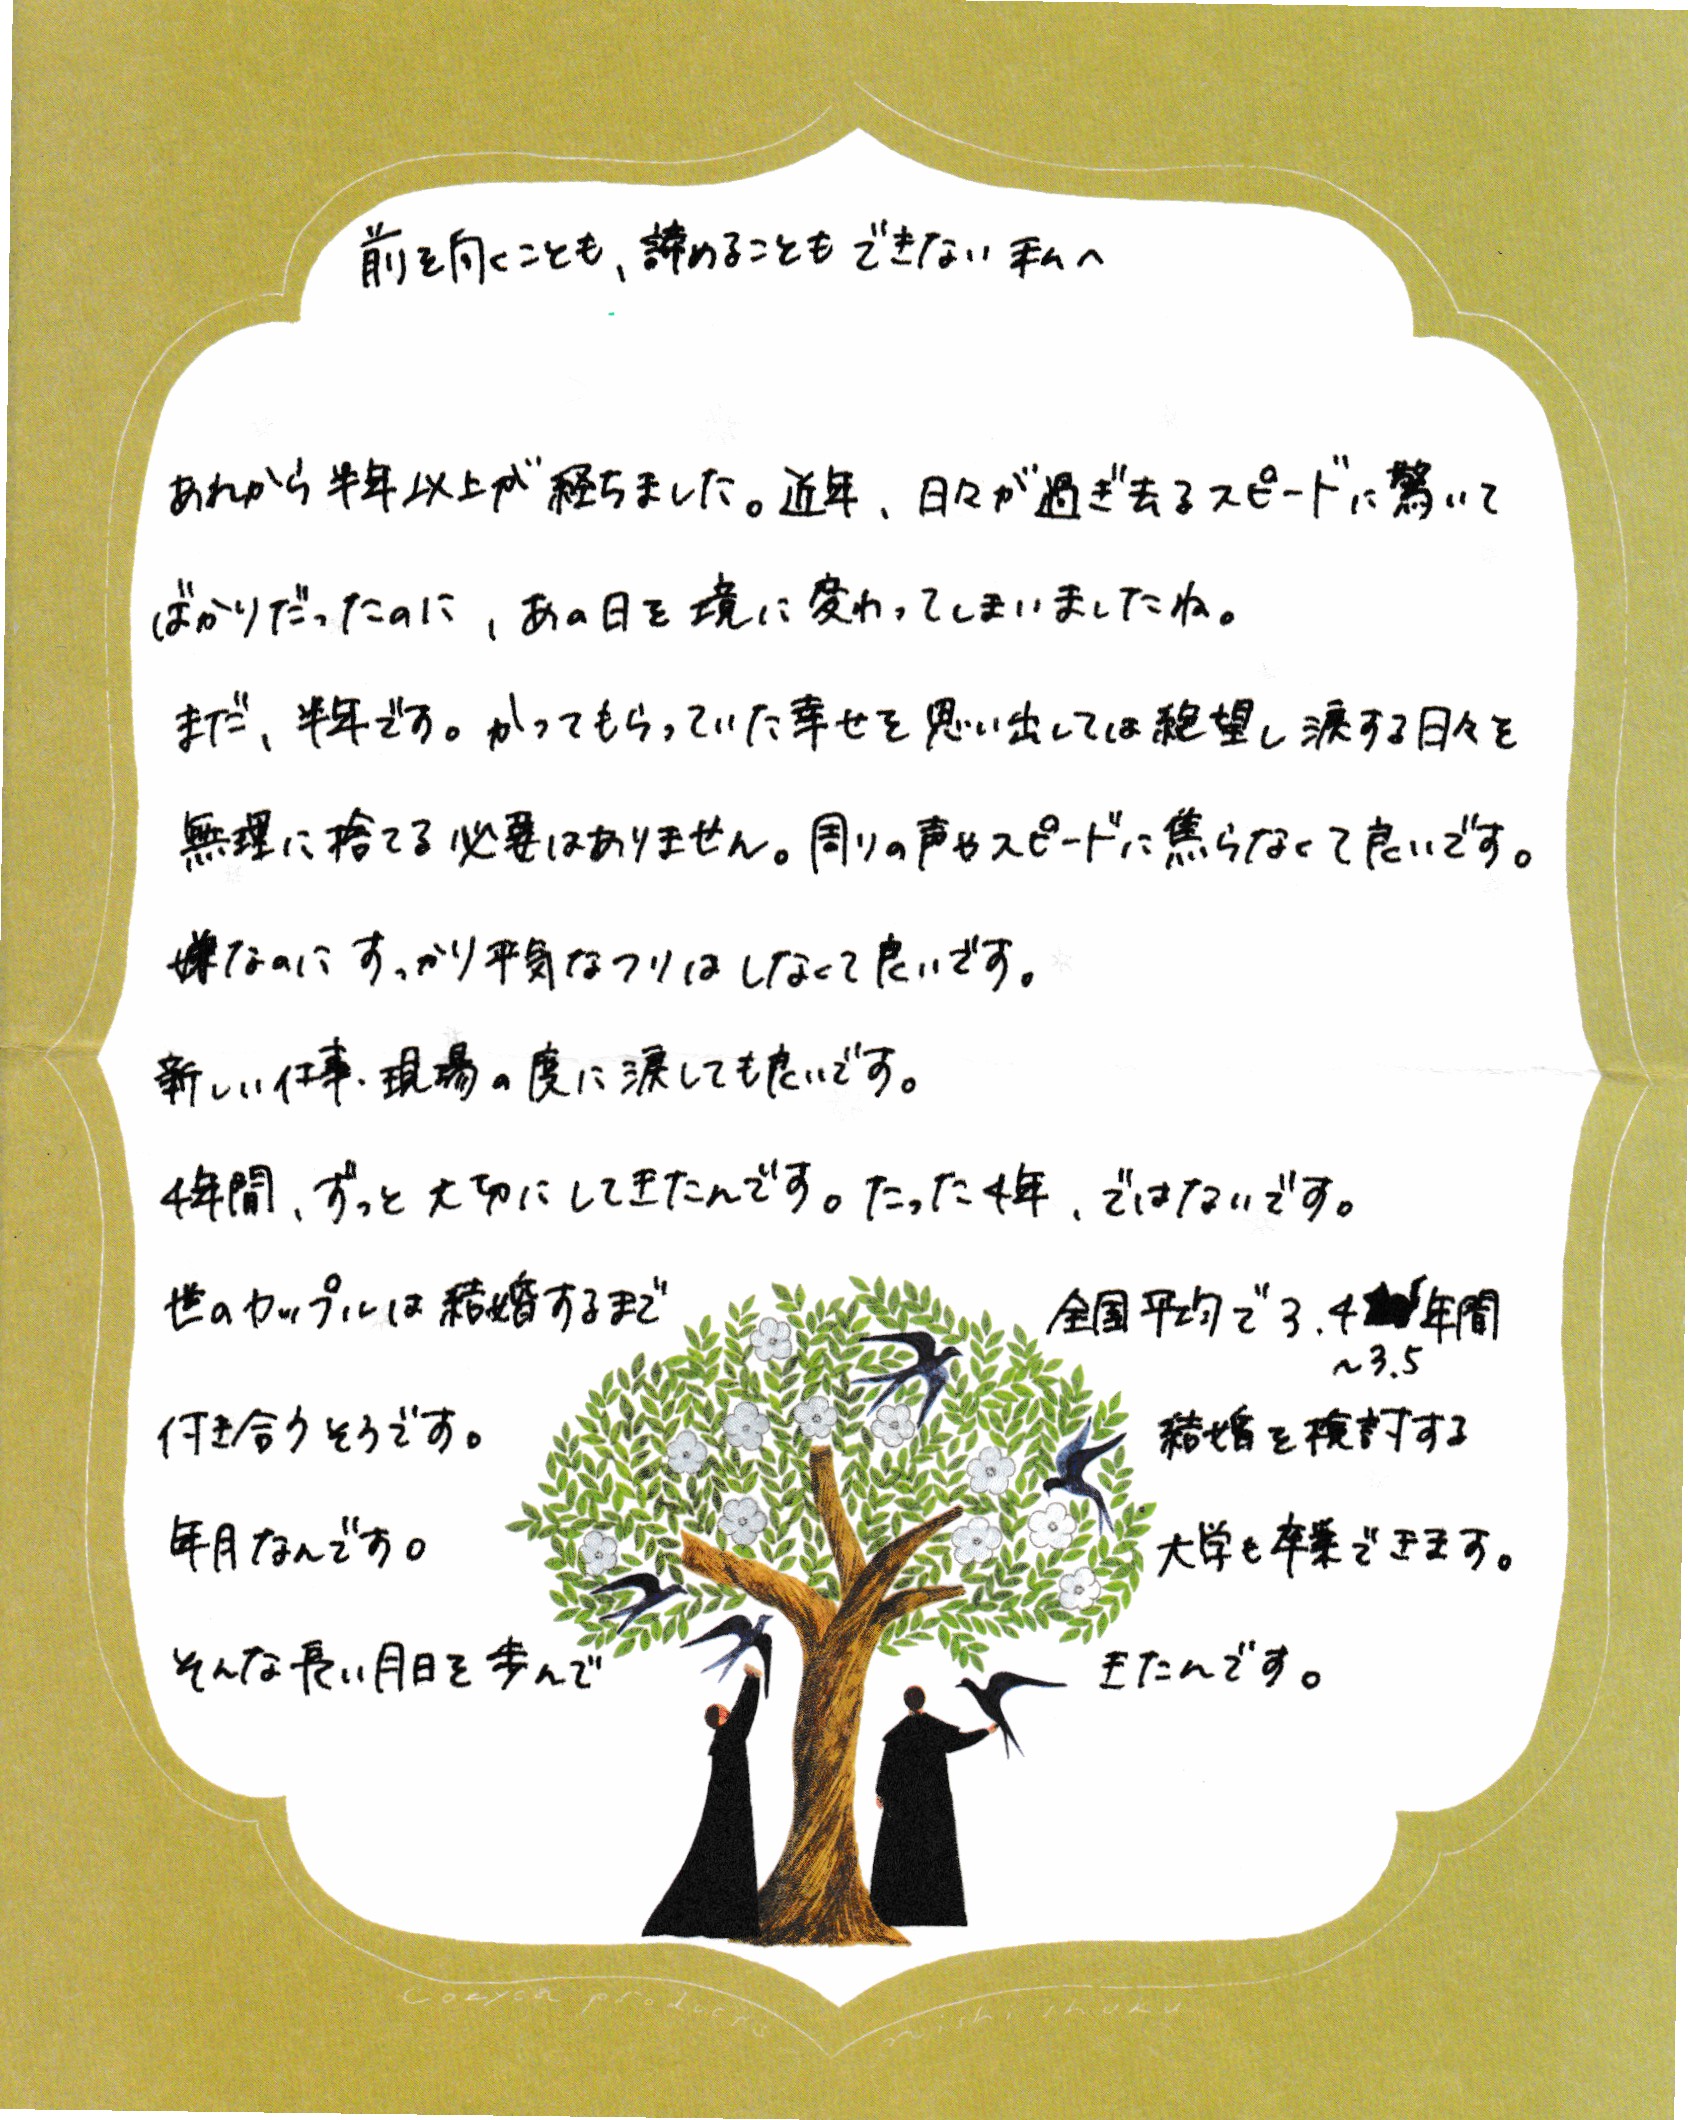 前を向くことも、諦めることもできない私へ
あれから半年以上が経ちました。近年、日々が過ぎ去るスピードに驚いて
ばかりだったのに、あの日を境に変わってしまいましたね。
まだ、半年です。かつてもらっていた幸せを思い出しては絶望し涙する日々を
無理に捨てる必要はありません。周りの声やスピードに焦らなくて良いです。
嫌なのにすっかり平気なフリはしなくて良いです。
新しい仕事・現場の度に涙しても良いです。
4年間、ずっと大切にしてきたんです。たった4年、ではないです。
世のカップルは結婚するまで全国平均で3.4年間
~3.5
付き合うそうです。結婚を検討する
年月なんです。大学も卒業できます。
そんな長い月日を歩んできたんです。
cozyca products nishi shuku